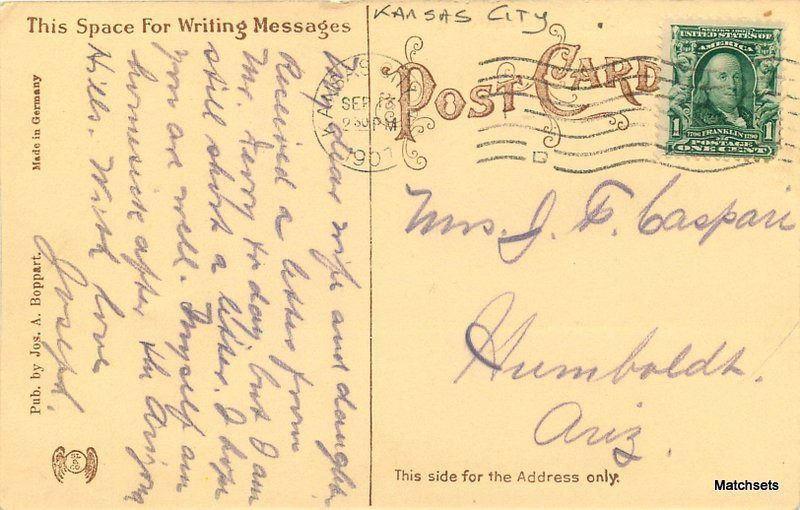 KANSAS CITY
This Space For Writing Messages
POST CARD
KANSAS
SEP
PM
1907
D
SERIES 1902
UNITED STATES OF
AMERICA
1 FRANKLIN 1
POSTAGE
ONE CENT
Made in Germany
Pub. by Jos. A. Boppart.
My dear wife and daughter
Received a letter from
Mr. to day but I am
still short a letter. I hope
you are well. I myself am
homesick after the Arizona
Hills. With love
Joseph.
Mrs. J. F. Caspari
Humboldt.
Ariz.
This side for the Address only.
Matchsets